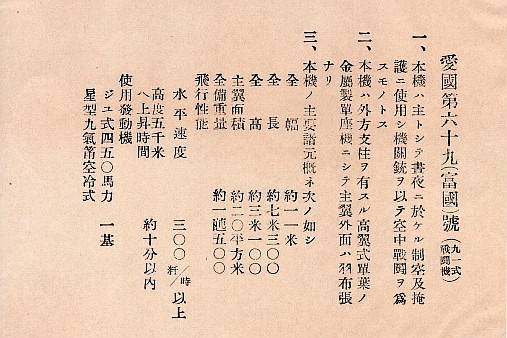 愛國第六十九(富國)號(九一式戰鬪機)
一、本機ハ主トシテ晝夜ニ於ケル制空及掩
護ニ使用シ機關銃ヲ以テ空中戰鬪ヲ爲
スモノトス
二、本機ハ外方支柱ヲ有スル高翼式單葉ノ
金屬製單座機ニシテ主翼外面ハ羽布張
ナリ
三、本機ノ主要諸元概ネ次ノ如シ
全幅 約一一米
全長 約七米三〇〇
全高 約三米一〇〇
主翼面積 約二〇平方米
全備重量 約一瓲五〇〇
飛行性能
水平速度 三〇〇粁/時以上
高度五千米
ヘ上昇時間 約十分以内
使用發動機
ジユ式四五〇馬力 一基
星型九氣筩空冷式